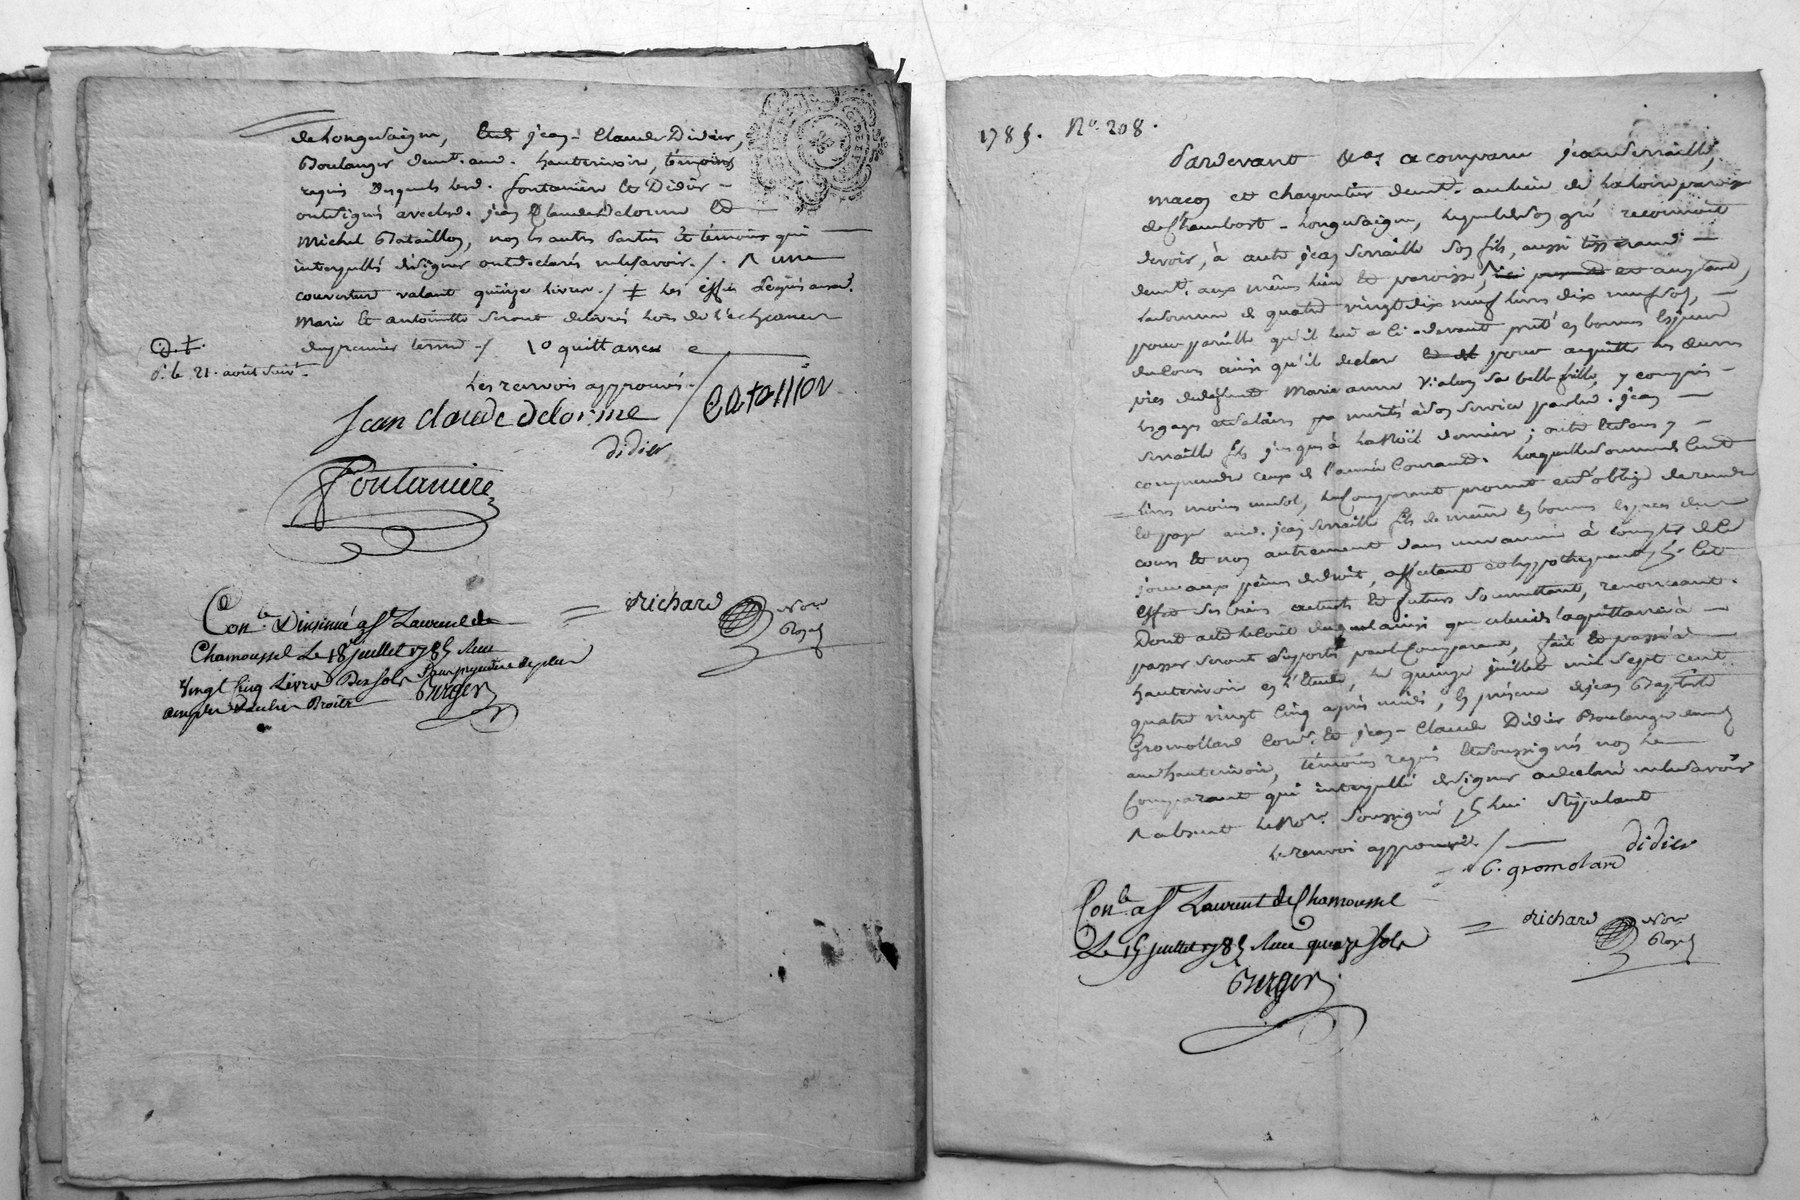 de Longesaigne, et de jean-Claude Didier,
Boulanger demt. aud. hauterivoir, témoins
requis desquels led. fontaniere et Didier
ont signés avec led. jean Claude Delorme et
Michel Bataillon, non les autres parties et témoins qui
interpellés de signer ont declarés ne le savoir ./. A une
couverture valant quinze livres ./ ‡ Les effets légués auxd.
Marie et antoinette seront delivrés lors de l'echeance
du premier terme ./ 1o quittances
D. f.
d. le 21. août suivt.
Les renvois approuvés ./
Jean Claude Delorme / Batallion
didier
Fontaniere
Conlé & insinué a St Laurent de
Chamousset Le 18 juillet 1785 Reçu
vingt cinq Livres Dix sols
Berger
= richard Nore
Royal
1785. No. 208.
Pardevant a comparu jean Serraille,
maçon et charpentier demt. au lieu de paroisse
de Chambost-Longesaigne, lequel de son gré reconnoit
devoir, à autre jean Serraille son fils, aussi
demt. aux mêmes lieu et paroisse,
la somme de quatre vingt dix neuf livres dix neuf sols,
pour pareille qu'il lui a ci-devant preté en bonnes Espèces
du cours ainsi qu'il declare pour acquitter les
de deffunte Marie anne Vialon sa belle fille, y compris
les gages et salaires merités à son service par led. jean
Serraille fils jusques à la Noël derniere; outre et sans y
comprendre ceux de l'année Courante. Laquelle somme de Cent
livres moins un sol, le Comparant promet et s'oblige de rendre
et payer aud. jean Serraille fils de même en bonnes Especes du
cours et non autrement dans une année à compter de ce
jour aux peines de droit, affectant et hypothequant
effet ses biens actuels et futurs soumettant, renonceant.
Dont acte le coût duquel ainsi que celui de la quittance à
passer seront suportés par le Comparant, fait et passé aud.
hauterivoir en l'Etude, le quinze juillet mil sept cent
quatre vingt Cinq après midi, En présence de jean Baptiste
Gromollard Cordr. et jean-Claude Didier Boulanger demt.
aud. hauterivoir, témoins requis et soussignés non le
Comparant qui interpellé de signer a declaré ne le savoir
A absent le Nore. soussigné pr. lui stipulant
le renvoi approuvé ./
didier
C. gromolard
Conlé a St Laurent de Chamousset
Le 15 juillet 1785 Reçu quinze sols
Berger
= richard Nore
Royal